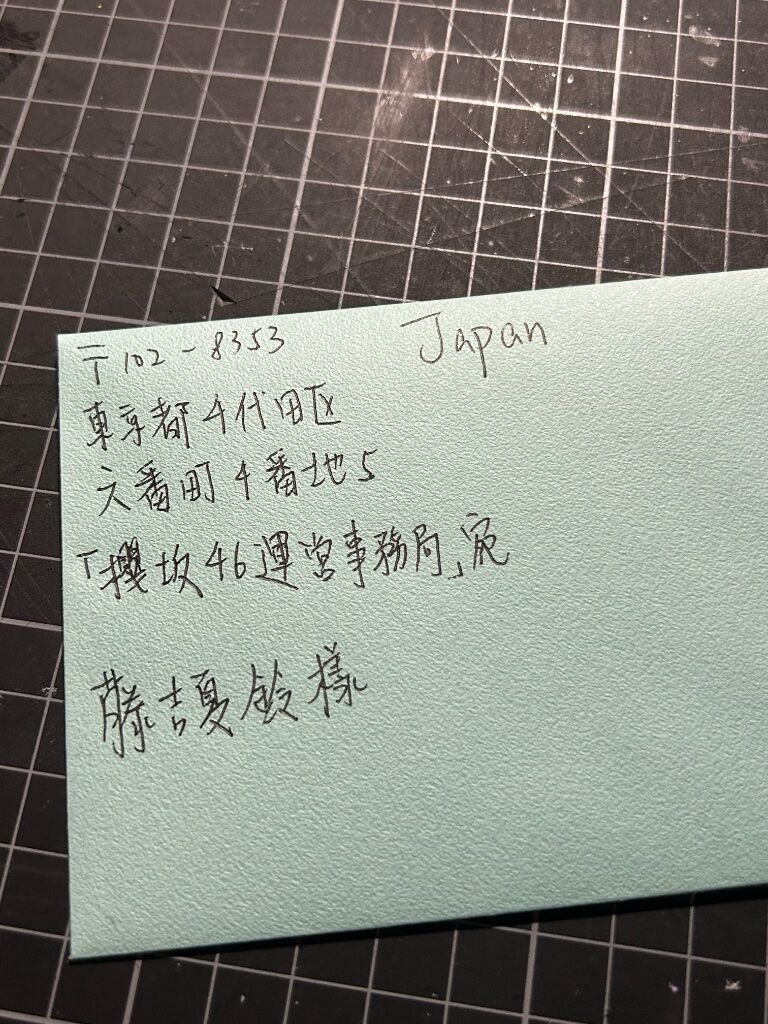 〒102-8353 Japan
東京都千代田区
六番町4番地5
「櫻坂46運営事務局」宛
藤吉夏鈴様